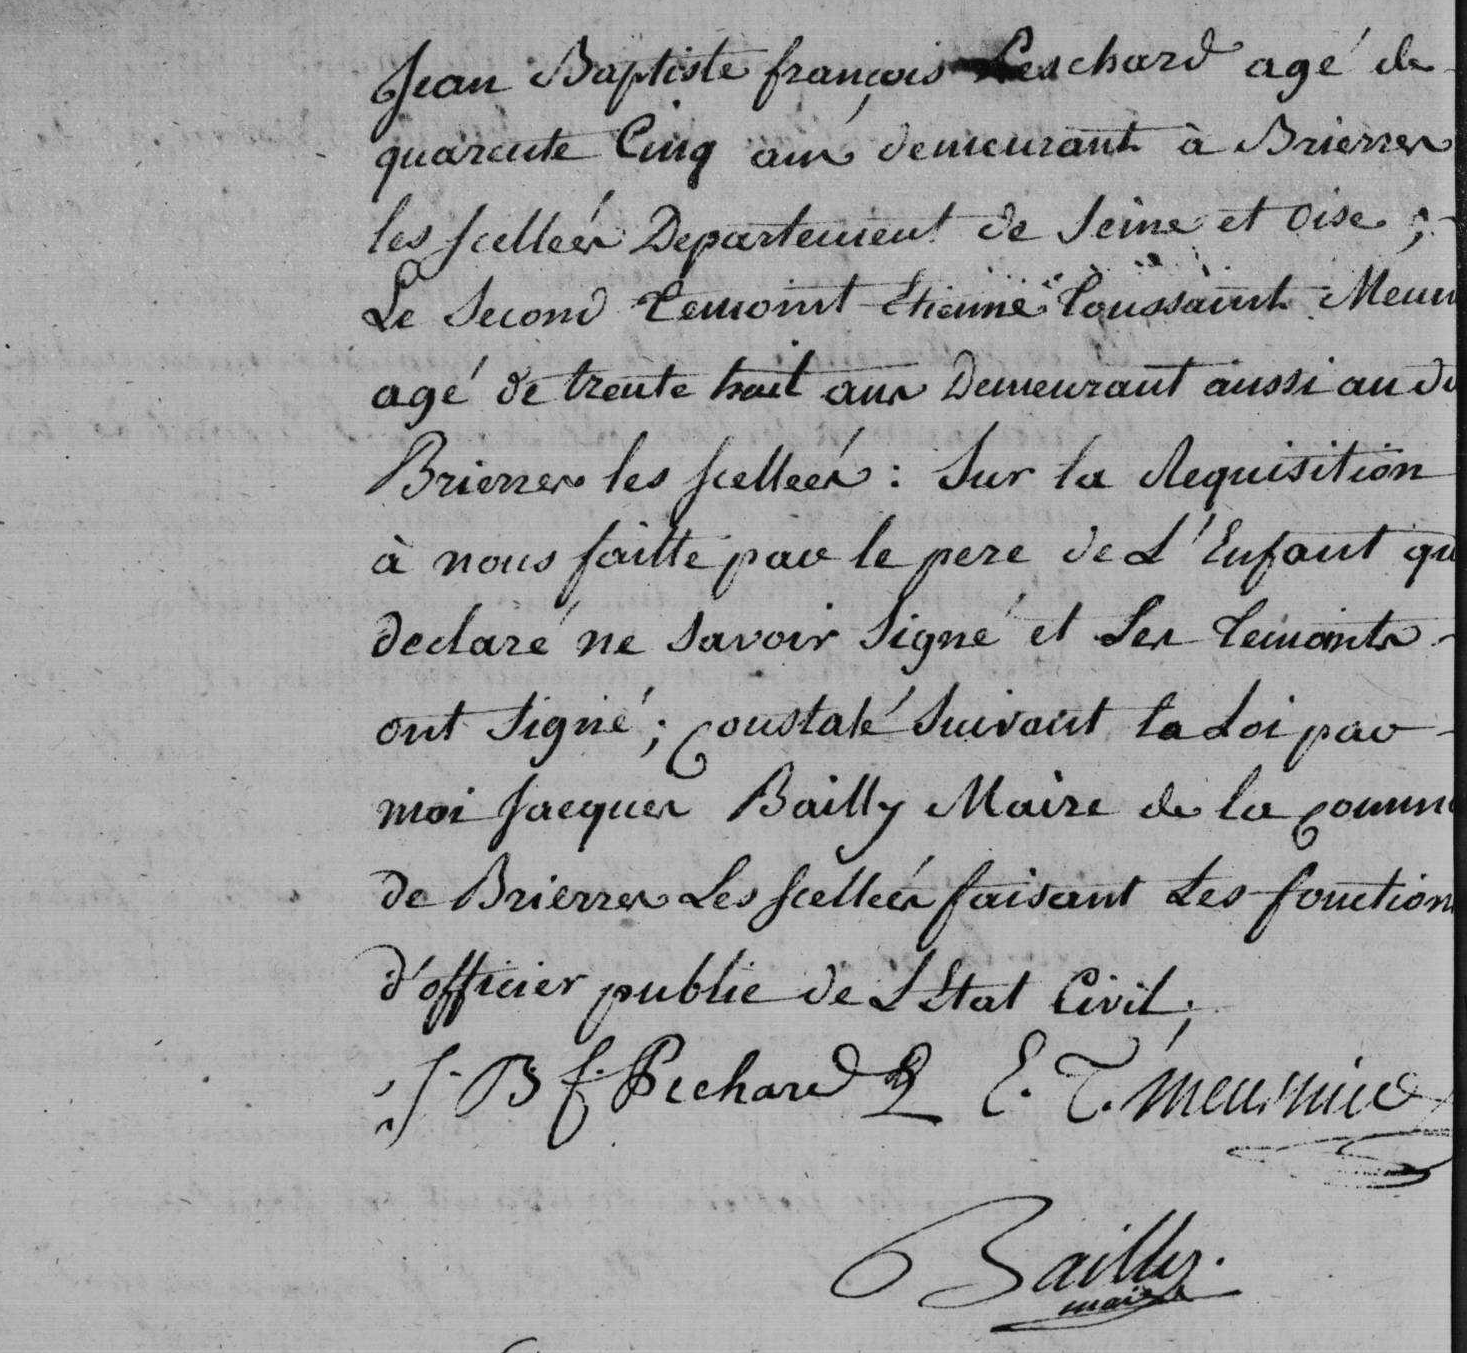 Jean Baptiste françois Leschard agé de
quarente Cinq ans demeurant à Brierres
les scelleés Departement de Seine et Oise ;
Le Second temoint Etienne Toussaint Meun
agé de trente huit ans Demeurant aussi au di
Brierres les scelleés : Sur la Requisition
à nous faitte par le pere de L'Enfant qu
declaré ne Savoir Signé et Les temoints -
ont Signé ; Constaté Suivant la Loi par -
moi Jacques Bailly Maire de la Commu
de Brierres Les Scelleés faisant Les fonction
d'officier public de L Etat Civil ;
J. B f. Pechard E. T. meunier
Bailly.
maire